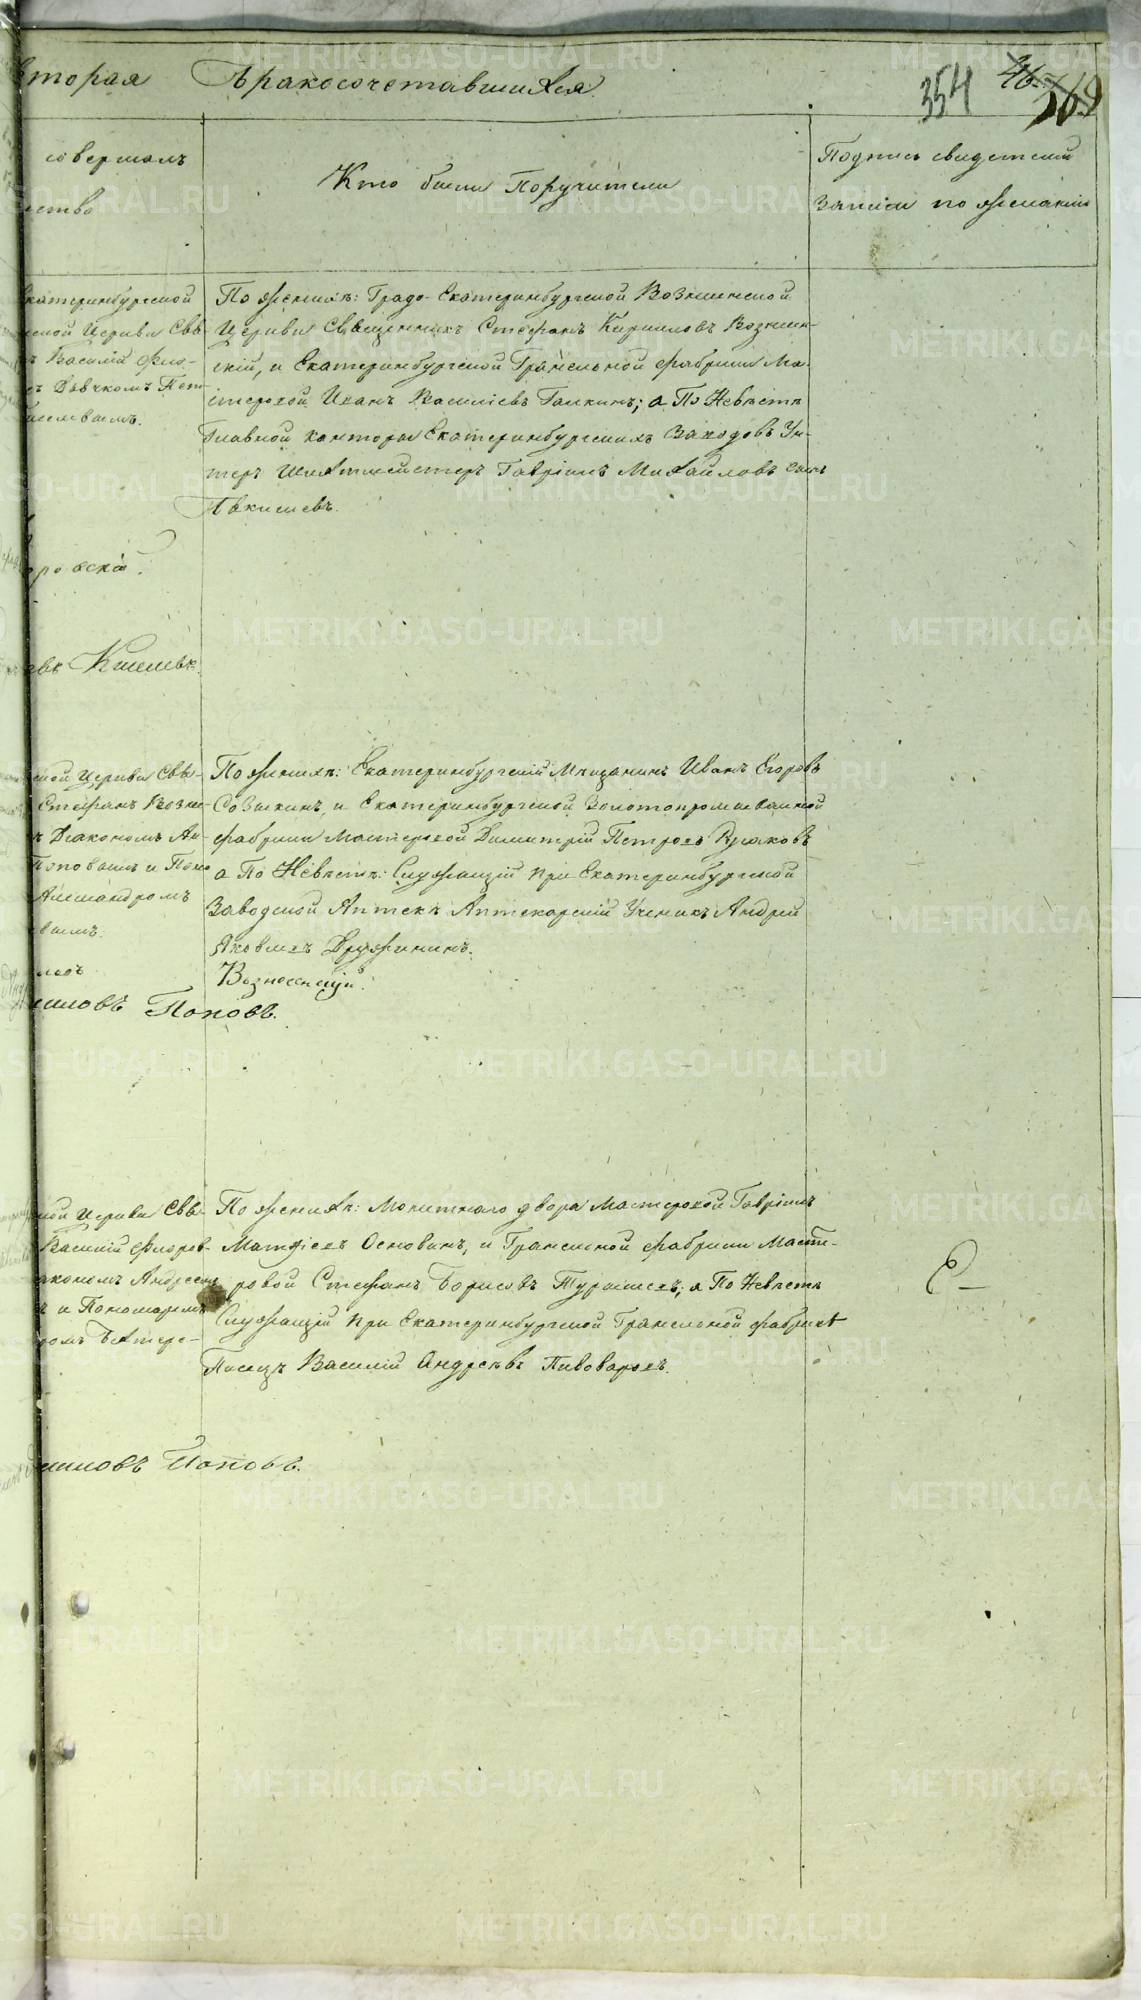 вторая Бракосочетавшихся
354 46. 369
совершалъ
ство
Кто были Поручители
Подпись свидетелей
записи по желанію
Екатеринбургской
ской Церкви Свя-
Василій Фло-
Дьячкомъ Пет-
По женихѣ: Градо-Екатеринбургской Вознесенской
Церкви Священникъ Стефанъ Кирилловъ Вознесен-
скій, и Екатеринбургской Гранильной фабрики Ма-
стеровой Иванъ Васильевъ Галкинъ; а По Невѣстѣ
Главной конторы Екатеринбургскихъ Заводовъ Ун-
теръ Шихтмейстеръ Гавріилъ Михайловъ сынъ
ровскій.
ской Церкви Свя-
Стефанъ Возне-
Діакономъ Ан-
Поповымъ и Поно
Александромъ
вымъ.
По женихѣ: Екатеринбургскій Мѣщанинъ Иванъ Егоровъ
Созыкинъ, и Екатеринбургской Золотопромываемой
фабрики Мастеровой Димитрій Петровъ
а По Невѣстѣ: Служащій при Екатеринбургской
Заводской Аптекѣ Аптекарскій Ученикъ Андрей
Яковлевъ Дружининъ.
Вознесенскій.
иловъ Поповъ.
ной Церкви Свя-
Василій Флоров-
акономъ Андреемъ
и Пономаремъ
По женихѣ: Монетнаго двора Мастеровой Гавріилъ
Матфіевъ Основинъ, и Гранильной фабрики Масте-
ровой Стефанъ Борисовъ Турышевъ; а По Невѣстѣ
Служащій при Екатеринбургской Гранильной фабрикѣ
Писецъ Василій Андреевъ Пивоваровъ.
иловъ Поповъ.
METRIKI.GASO-URAL.RU